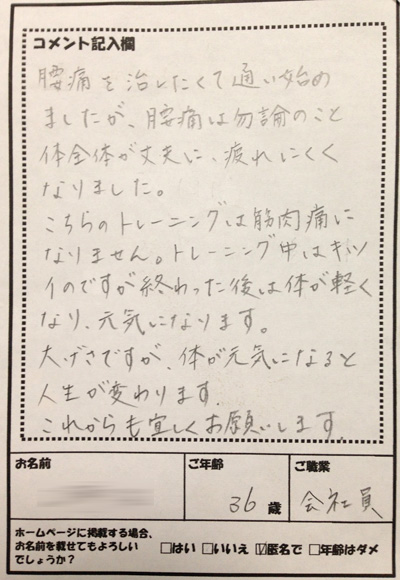 コメント記入欄
腰痛を治したくて通い始め
ましたが、腰痛は勿論のこと
体全体が丈夫に、疲れにくく
なりました。
こちらのトレーニングは筋肉痛に
なりません。トレーニング中はキツ
イのですが終わった後は体が軽く
なり、元気になります。
大げさですが、体が元気になると
人生が変わります。
これからも宜しくお願いします。
お名前
ご年齢
36歳
ご職業
会社員
ホームページに掲載する場合、
お名前を載せてもよろしい
でしょうか?
□はい □いいえ ☑匿名で □年齢はダメ